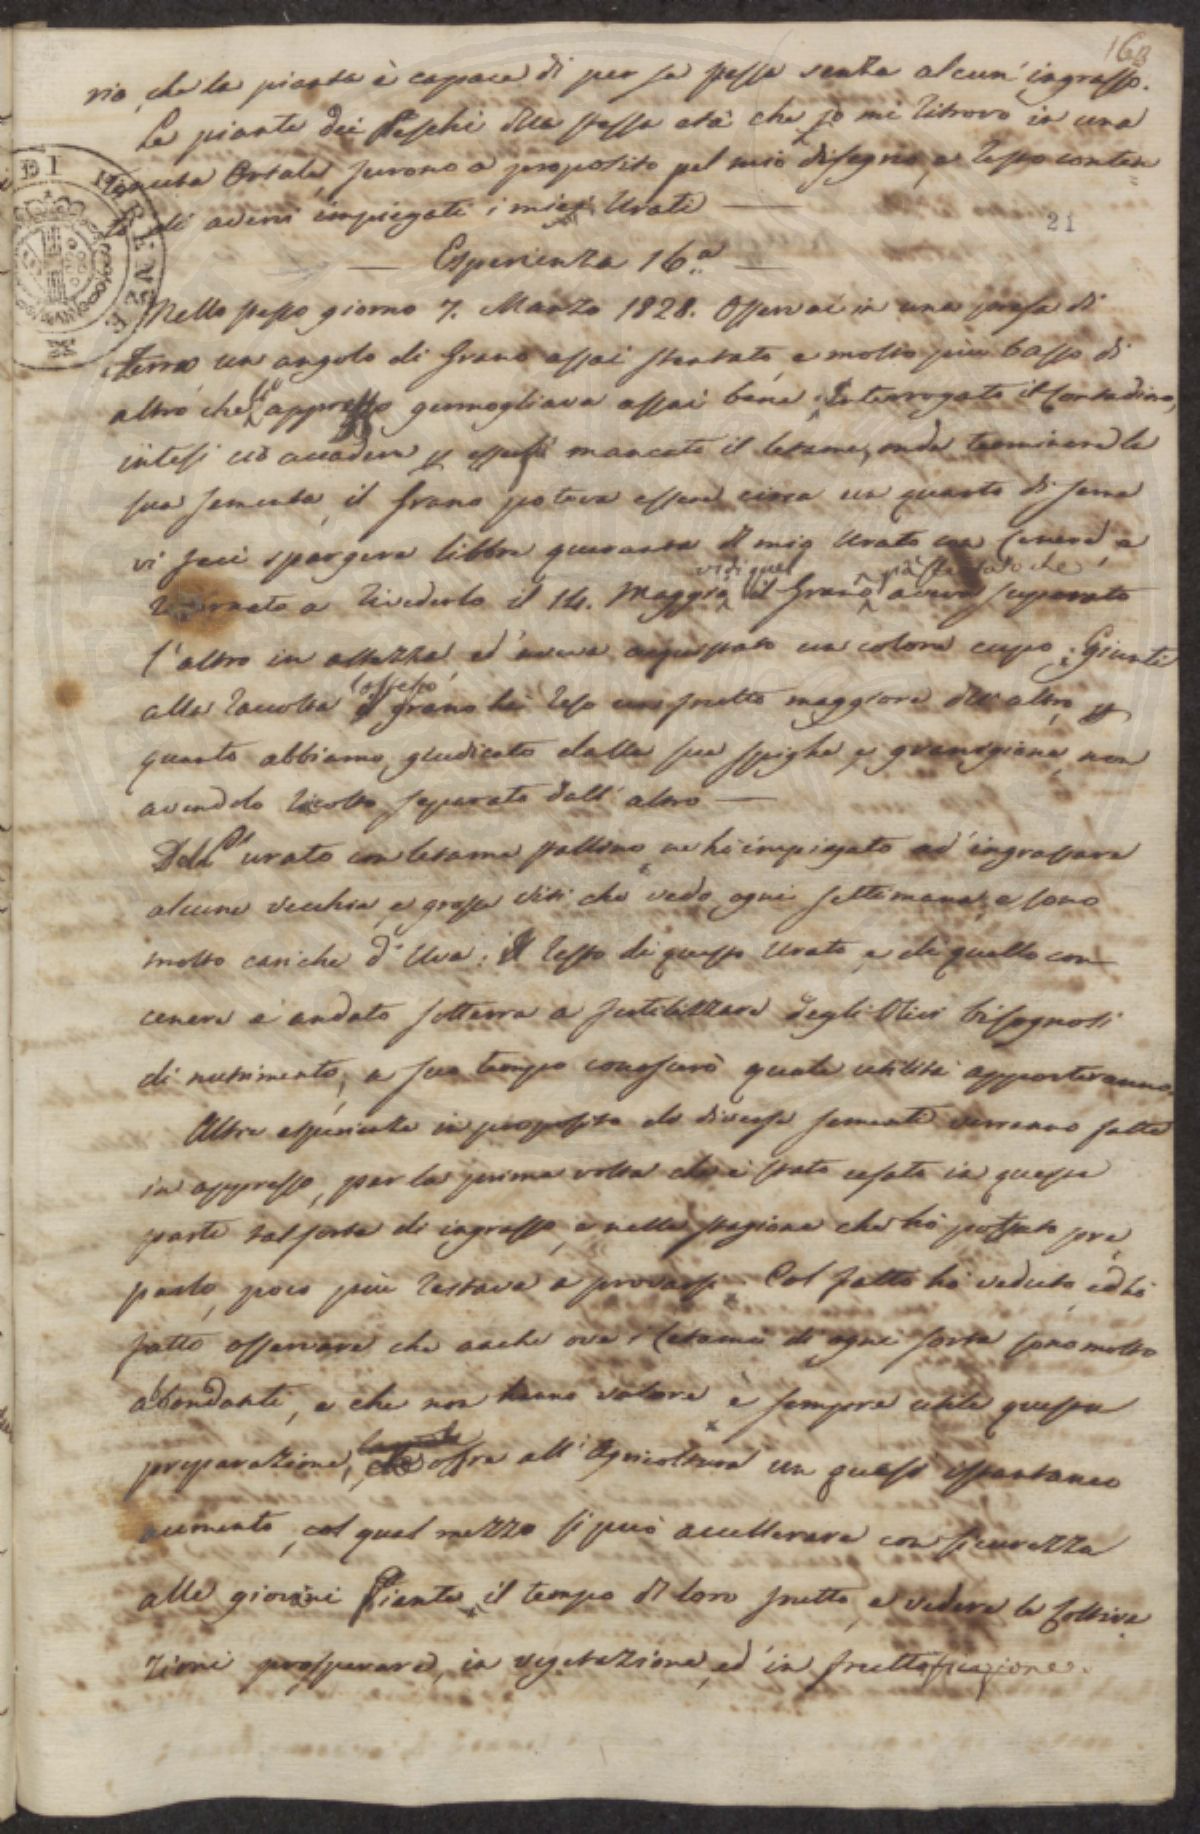 163
rio, che la pianta è capace di per se stessa senza alcun' ingrasso.
Le piante dei Peschi della stessa età che io mi ritrovo in una
tenuta Ortale, furono a proposito pel mio disegno, e resto conten=
to di avervi impiegati i miei Urati —
21
— Esperienza 16.a —
Nello stesso giorno 7. Marzo 1828. Osservai in una presa di
terra un angolo di Grano assai stentato, e molto più basso di
altro che lo appresso germogliava assai bene: Interrogato il Contadino,
intesi ciò accadere p essersi mancato il letame, onde terminare la
sua sementa, il Grano poteva essere circa un quarto di
vi feci spargere libbre quaranta di mio Urato con Cenere, e
vidi quel già stentato che
ritornato a rivederlo il 14. Maggio il Grano aveva superato
l'altro in altezza ed aveva acquistato un colore cupo: Giunti
alla raccolta il grano hà reso un frutto maggiore dell' altro p
quanto abbiamo giudicato dalle sue spighe, e granigione, non
avendolo ricolto separato dall' altro —
Dell' urato con letame pallino ne hò impiegato ad' ingrassare
alcune vecchie, e grosse viti che vedo ogni settimana, e sono
molto cariche d' Uva: Il resto di questo Urato, e di quello con
cenere è andato sotterra a fertilizzare degli Ulivi bisognosi
di nutrimento, a suo tempo conoscerò quale utilità apporteranno.
Altre esperienze in proposito di diverse sementi verranno fatte
in appresso, per la prima volta che è stato usato in queste
parti tal sorta di ingrasso, e nella stagione che hò potuto pre,
parlo, poco più restava a provarsi. Col fatto hò veduto, ed hò
fatto osservare che anche ove i letami di ogni sorta sono molto
abondanti, e che non hanno valore è sempre utile questa
preparazione, che offre all' Agricoltura un quasi istantaneo
aumento, col qual mezzo si può accellerare con sicurezza
alle giovini Piante il tempo di loro frutto, e vedere le Coltiva
zioni prosperare, in vegetazione, ed' in fruttificazione.